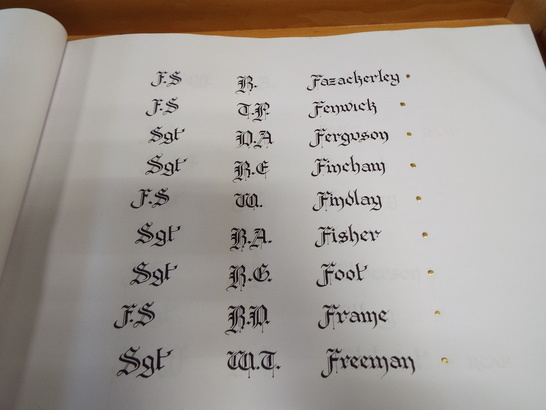 F.S R. Fazackerley
F.S T.P. Fenwick
Sgt D.A Ferguson
Sgt R.E Fincham
F.S W. Findlay
Sgt R.A. Fisher
Sgt R.G. Foot
F.S R.D. Frame
Sgt W.T. Freeman